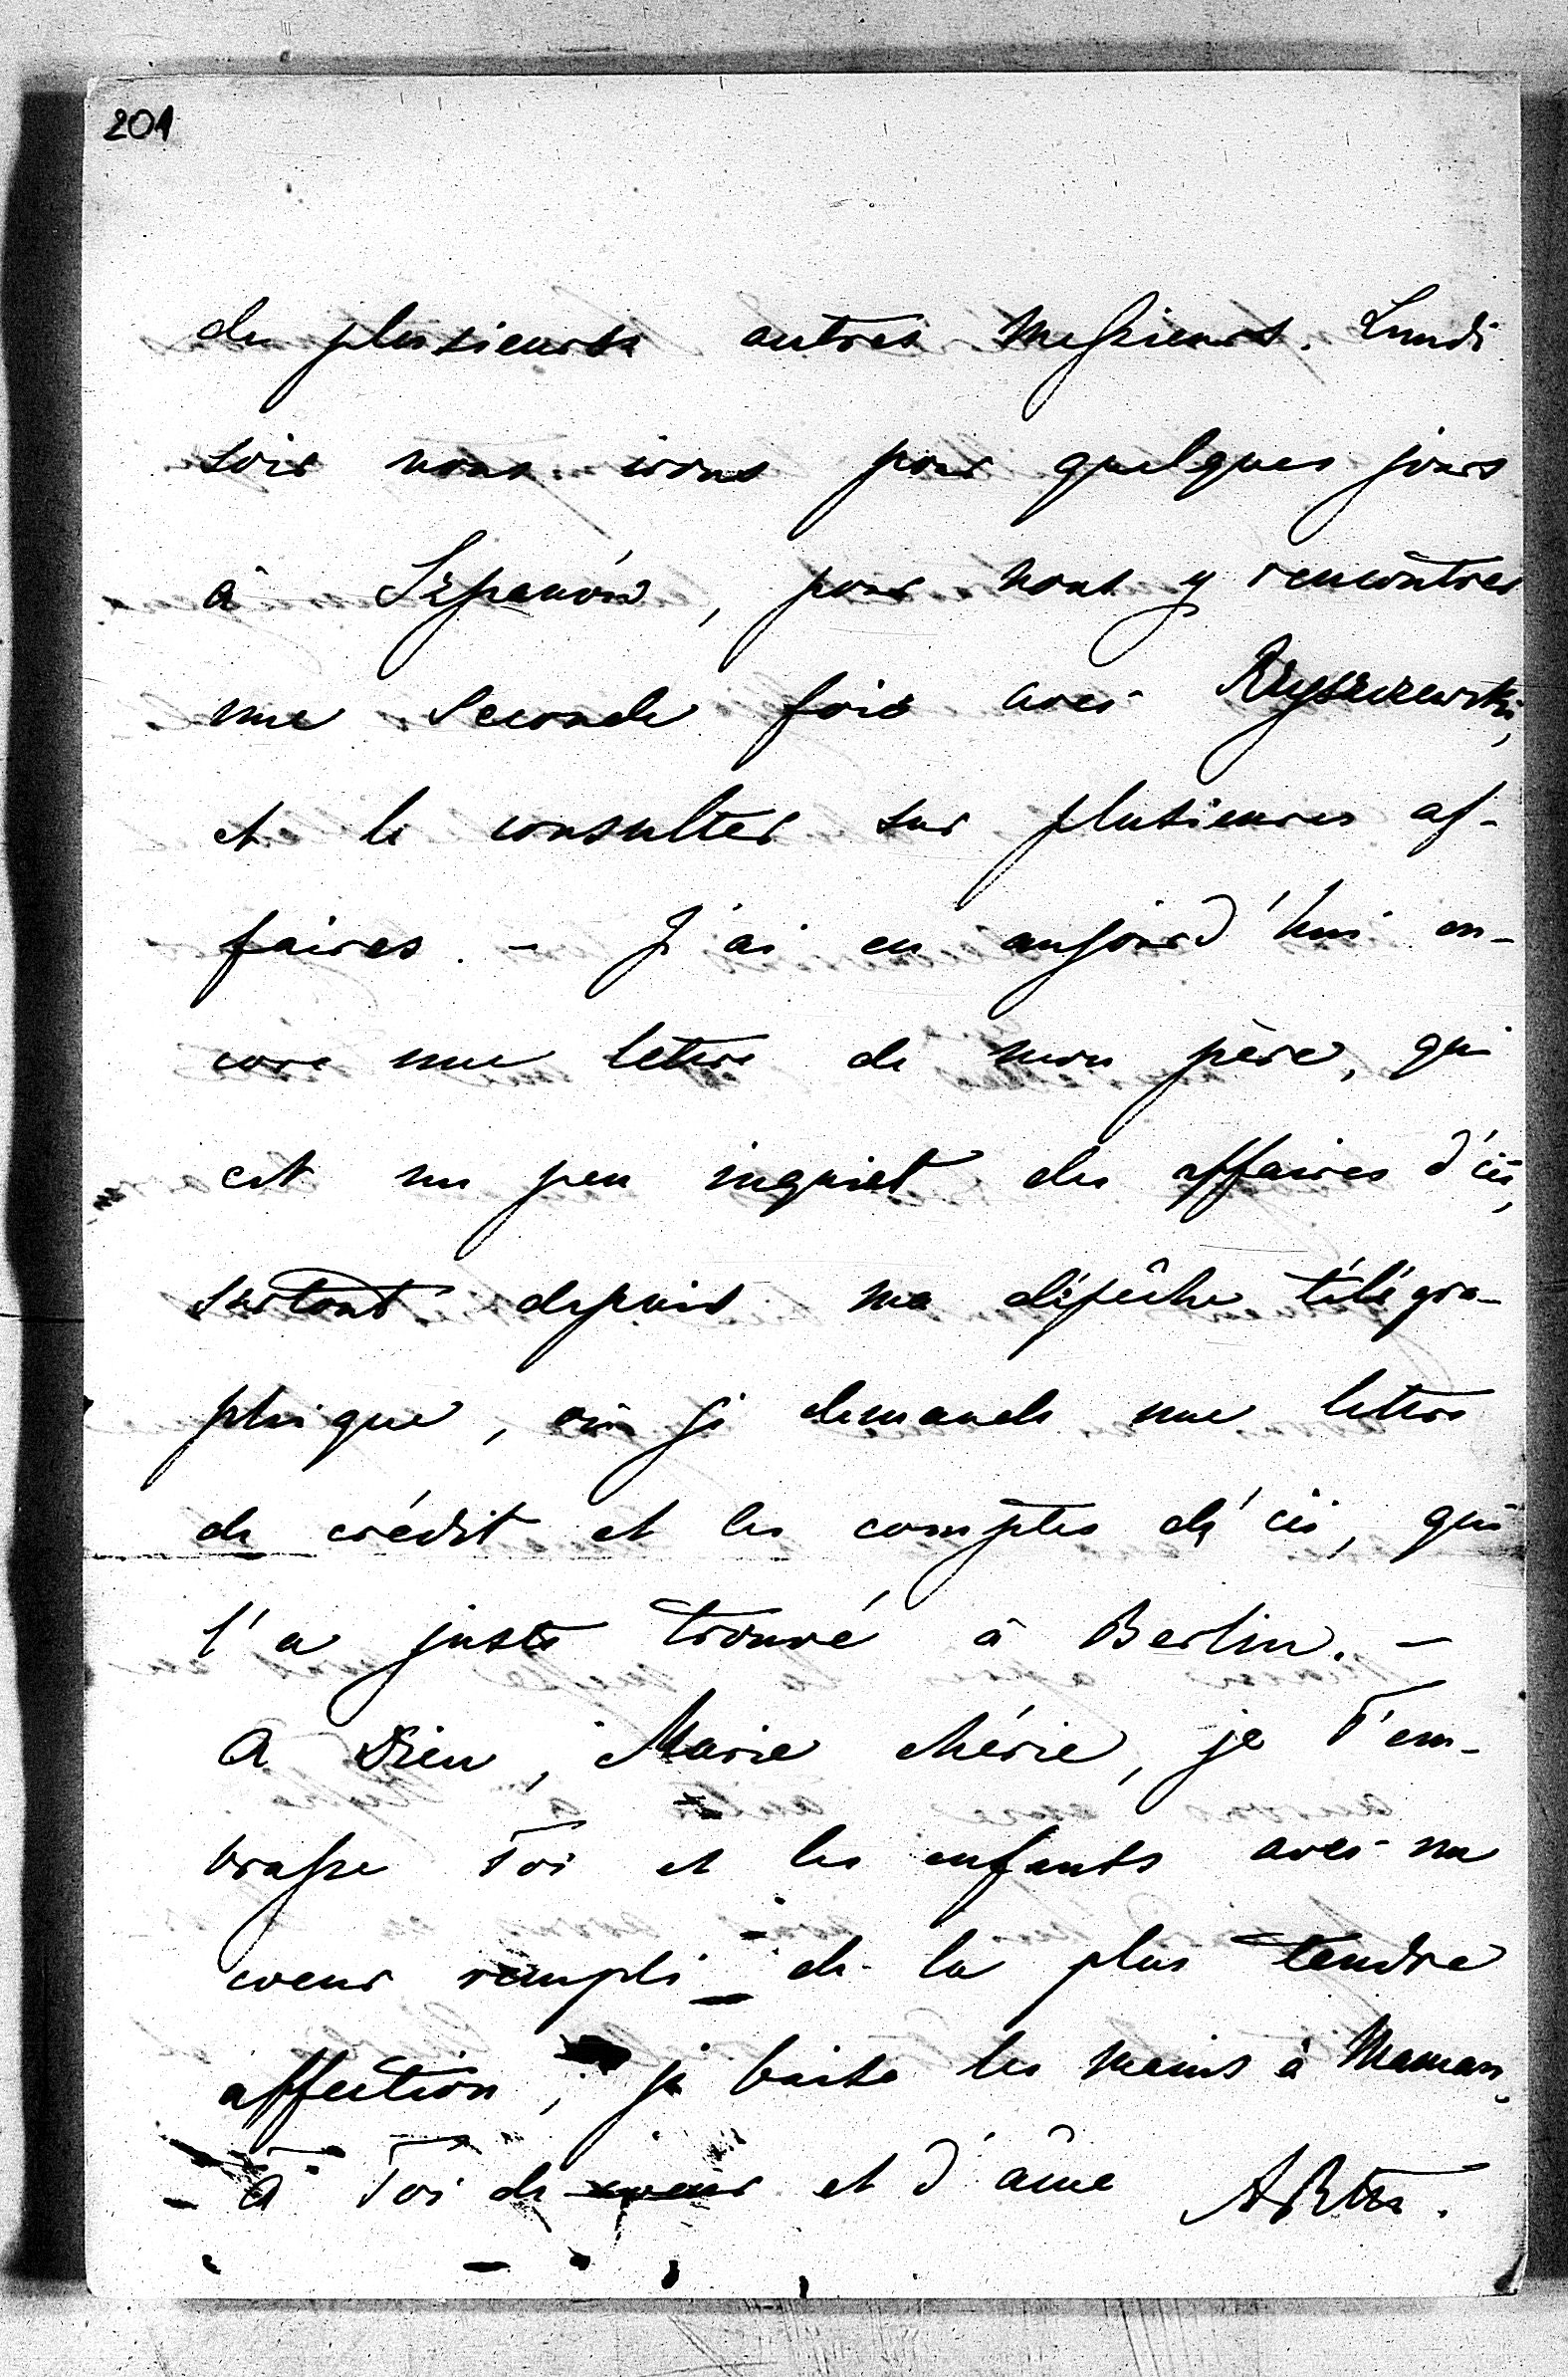 201
de plusieurs autres Messieurs. Lundi
soir nous irons pour quelques jours
à Szpanów, pour nous y rencontrer
une seconde fois avec Ryszczewski,
et le consulter sur plusieures af-
faires. – J'ai eu aujourd'hui en-
core une lettre de mon père, qui
est un peu inquiet des affaires d'ici,
surtout depuis ma dépêche télégra-
phique, où je demande une lettre
de crédit et les comptes d'ici, qui
l'a juste trouvé à Berlin. –
A Dieu, Marie chérie, je T'em-
brasse Toi et les enfants avec un
coeur rempli de la plus tendre
affection, je baise les mains à Maman.
à Toi de coeur et d'âme